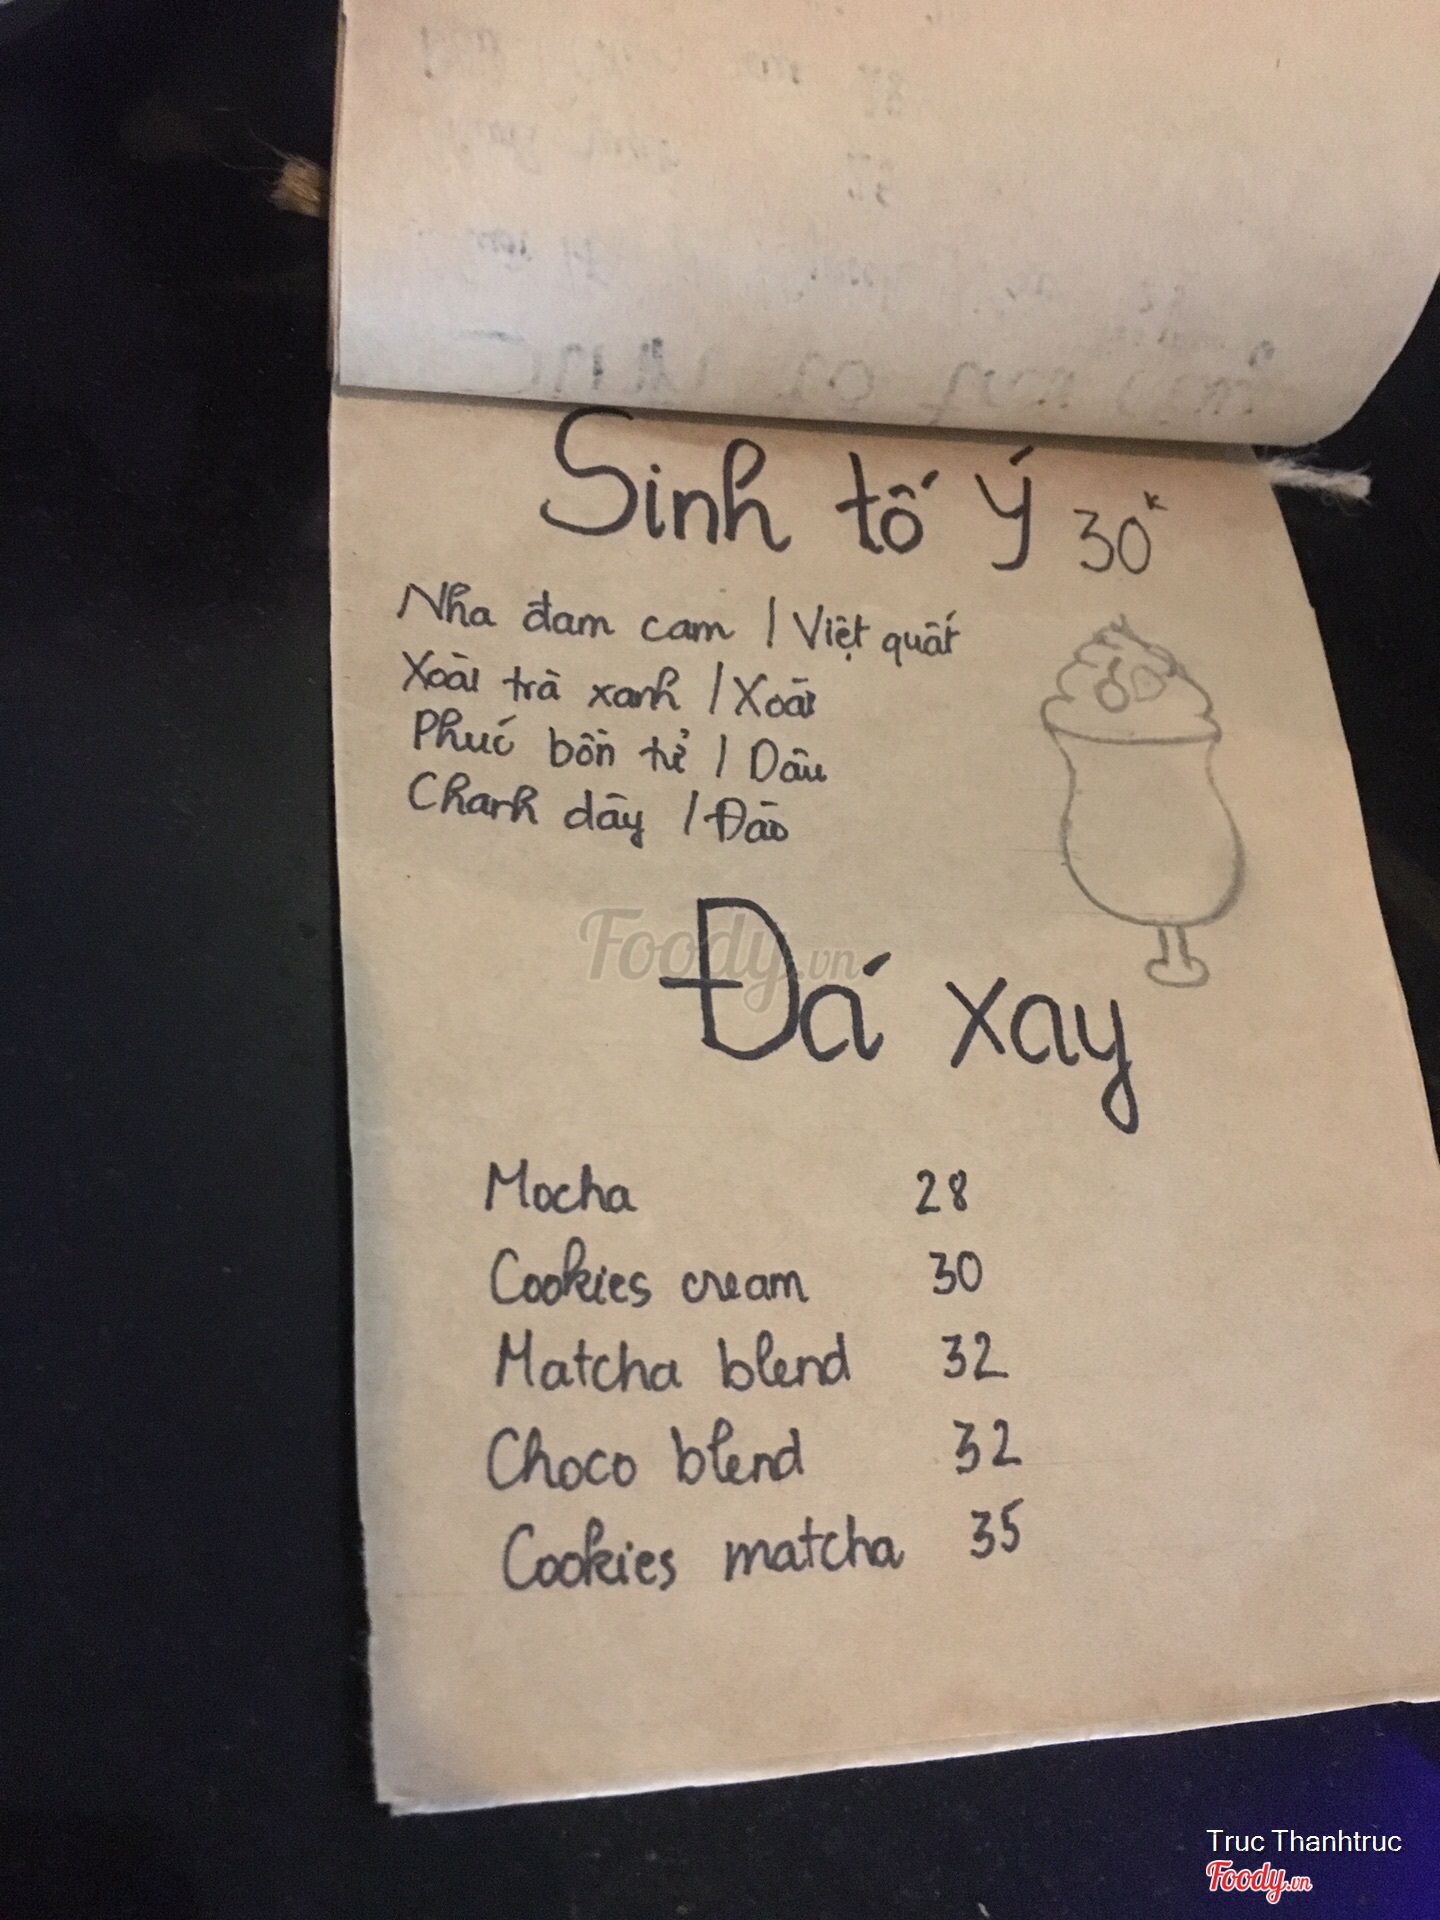 Sinh tố Ý 30k
Nha đam cam / Việt quất
Xoài trà xanh / Xoài
Phúc bồn tử / Dâu
Chanh dây / Đào
Đá xay
Mocha 28
Cookies cream 30
Matcha blend 32
Choco blend 32
Cookies matcha 35
Foody.vn
Truc Thanhtruc
Foody.vn